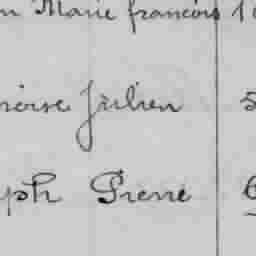 n Marie francois 1
noise Julien 5
ph Pierre 6